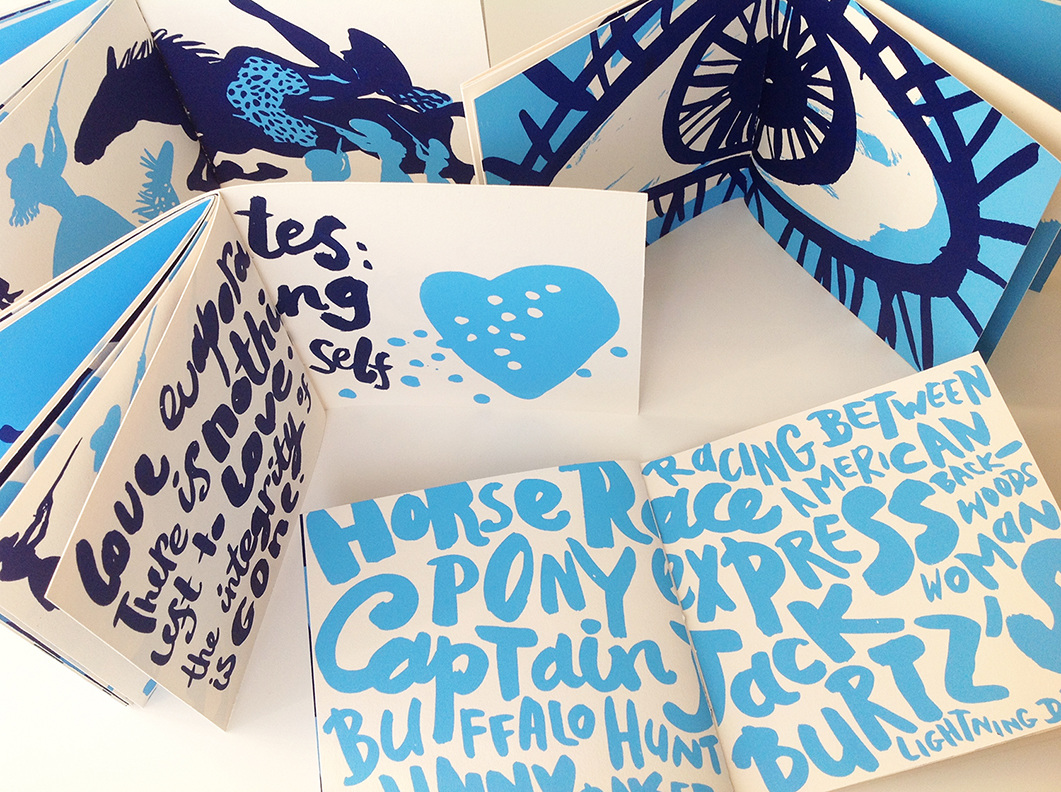 Love evaporates:
There is nothing
left to love:
the integrity of self
is GONE!
RaCING BETWEEN
HORSe Race AMERICAN
PONY exPRESS
BACK-
WOODS
WOMAN
Captain Jack
BURTZ'S
BUFFALO HUNT
LIGHTNING D